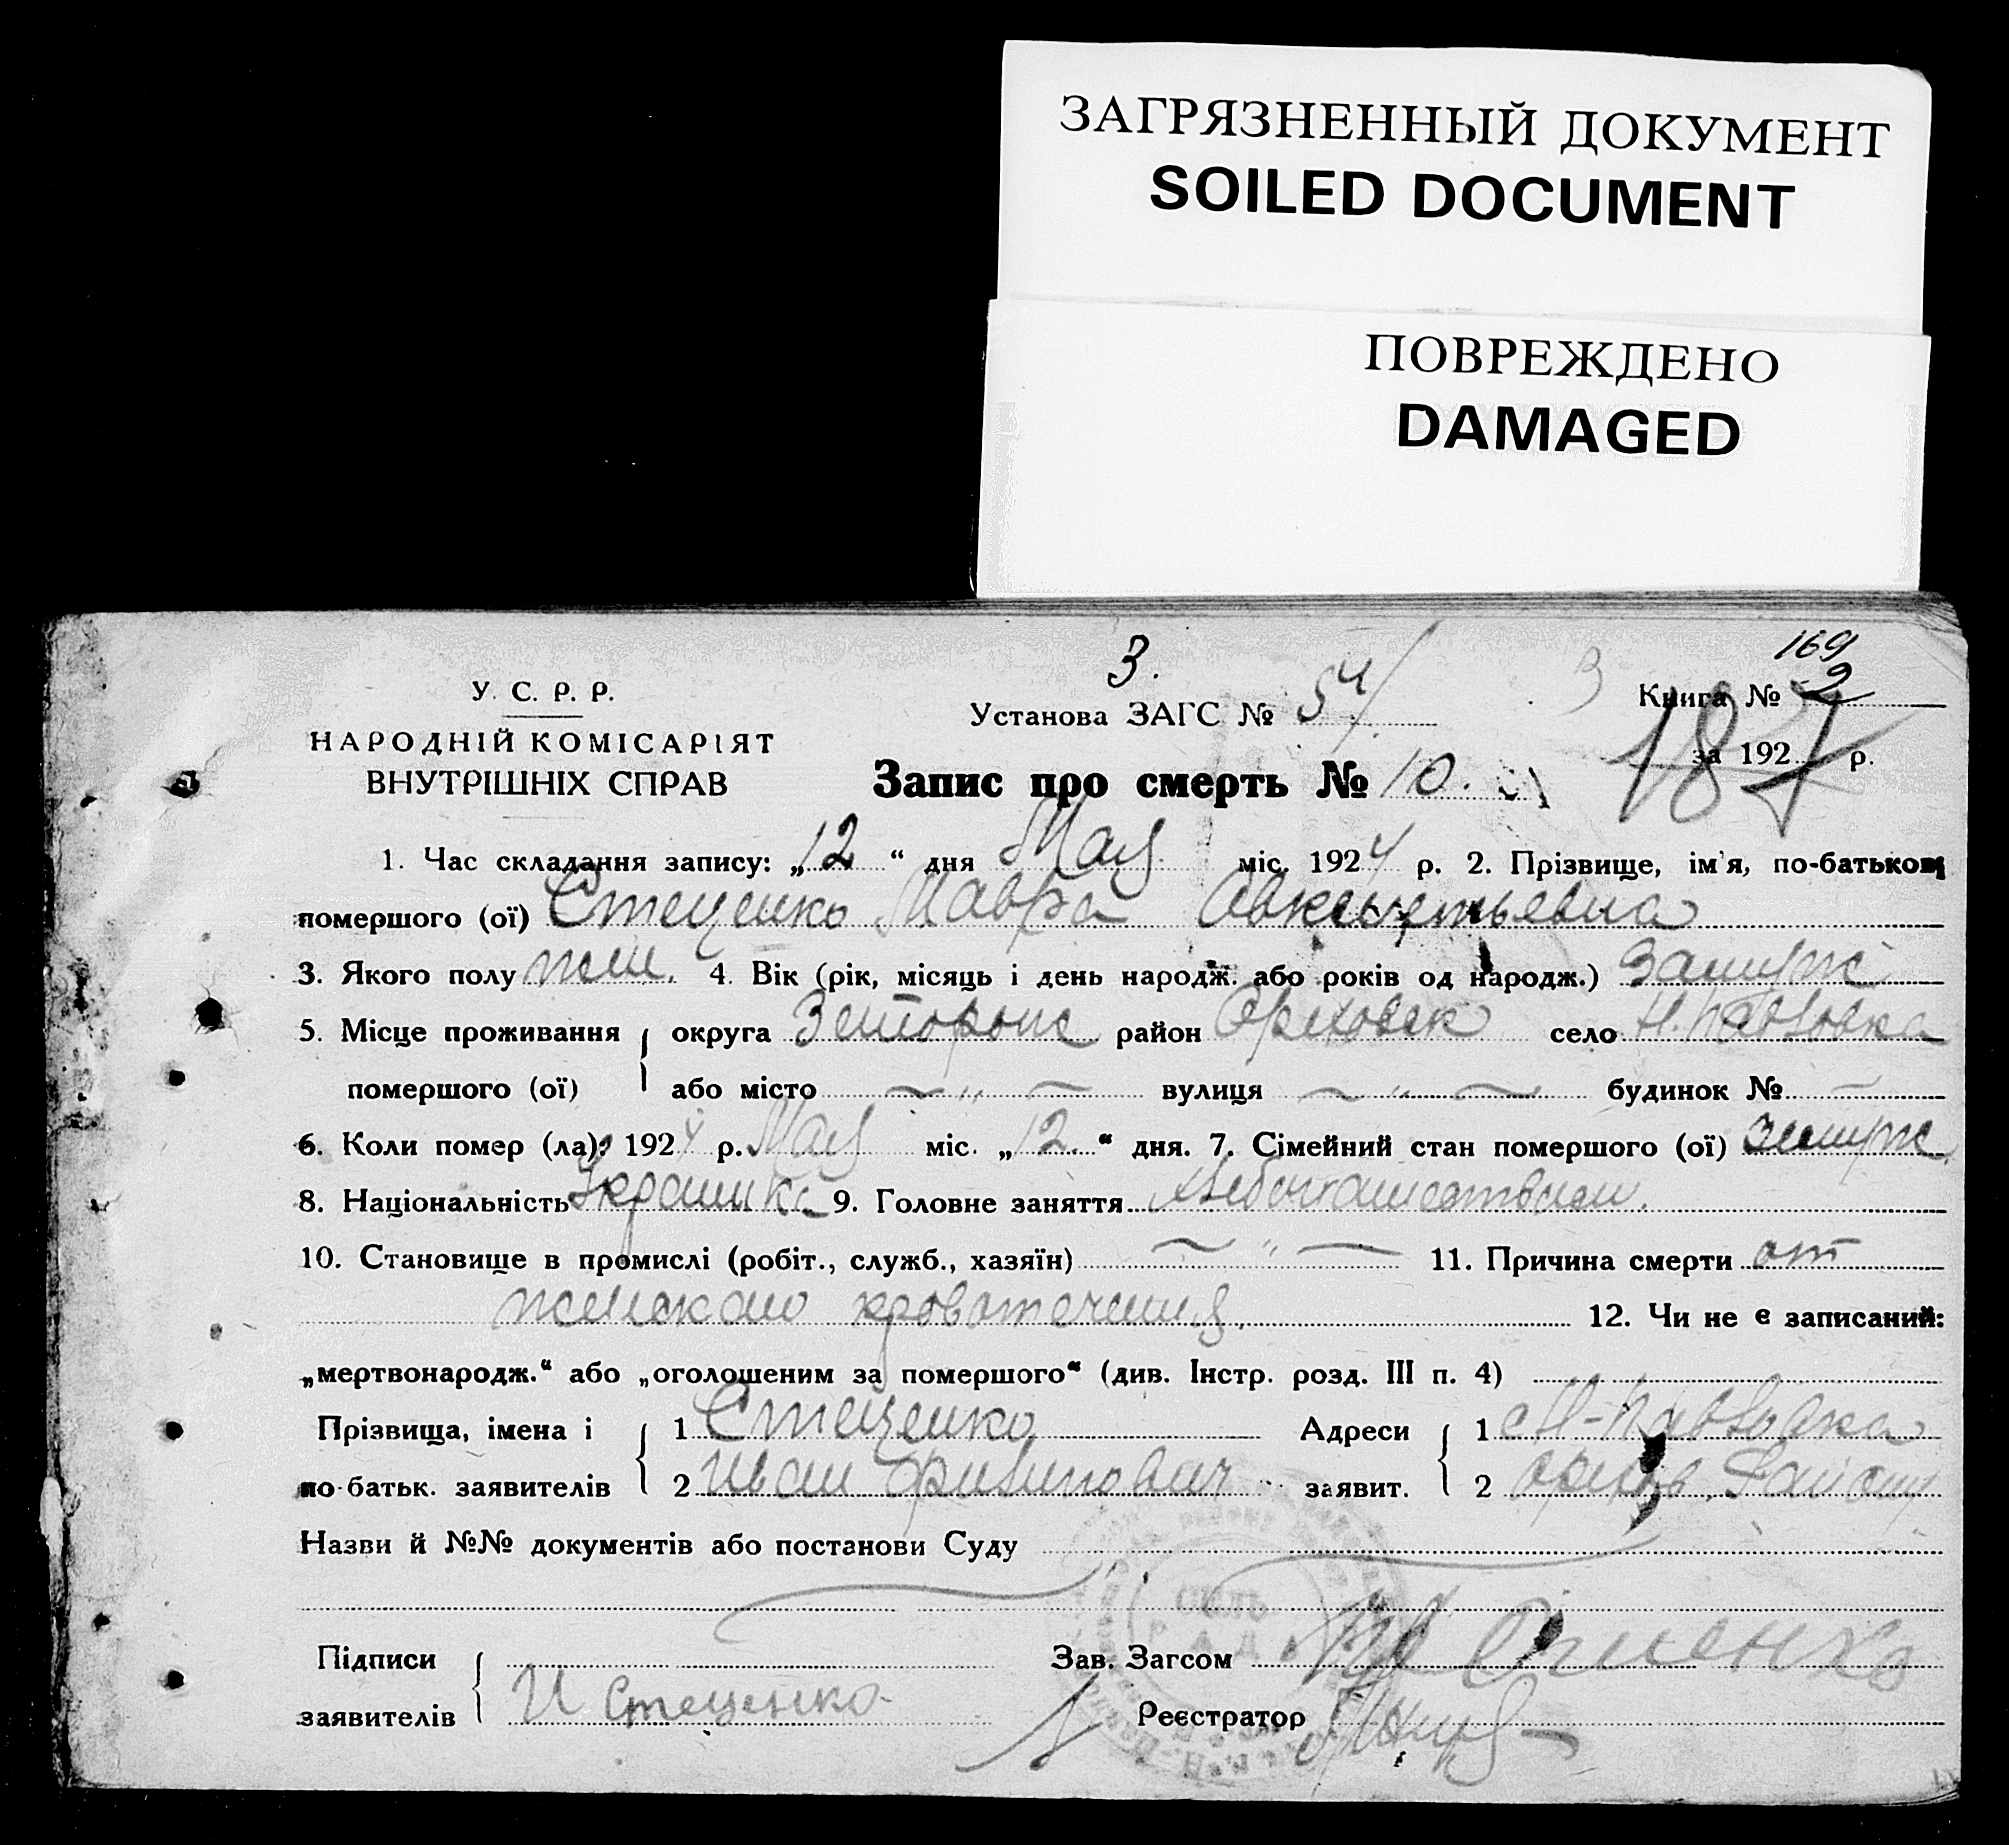 ЗАГРЯЗНЕННЫЙ ДОКУМЕНТ
SOILED DOCUMENT
ПОВРЕЖДЕНО
DAMAGED
3.
169
У. С. Р. Р.
Установа ЗАГС № 54
3
Книга № 2
НАРОДНІЙ КОМІСАРІЯТ
за 192 р.
187
ВНУТРІШНІХ СПРАВ
Запис про смерть № 10.
1. Час складання запису: „12“ дня Мая міс. 1924 р. 2. Прізвище, ім'я, по-батькові
помершого (ої) Стеценко Мавра Авксентьевна
3. Якого полу жен. 4. Вік (рік, місяць і день народж. або років од народж.) Замуж
5. Місце проживання округа Запорож район Ореховск село Н. Павловка
помершого (ої) або місто — „ — вулиця — „ — будинок № —
6. Коли помер (ла): 1924 р. Мая міс. „12.“ дня. 7. Сімейний стан помершого (ої) Замуж
8. Національність Украинка 9. Головне заняття Хлебопашеством.
10. Становище в промислі (робіт., служб., хазяїн) — „ — 11. Причина смерти от
женскаго кровотечения. 12. Чи не є записаний:
„мертвонародж.“ або „оголошеним за помершого“ (див. Інстр. розд. III п. 4)
Прізвища, імена і 1 Стеценко Адреси 1 Н-Павловка
по-батьк. заявителів 2 Иван Филипович заявит. 2 Орехов. Района
Назви й №№ документів або постанови Суду
Підписи Зав. Загсом
заявителів И Стеценко Реєстратор